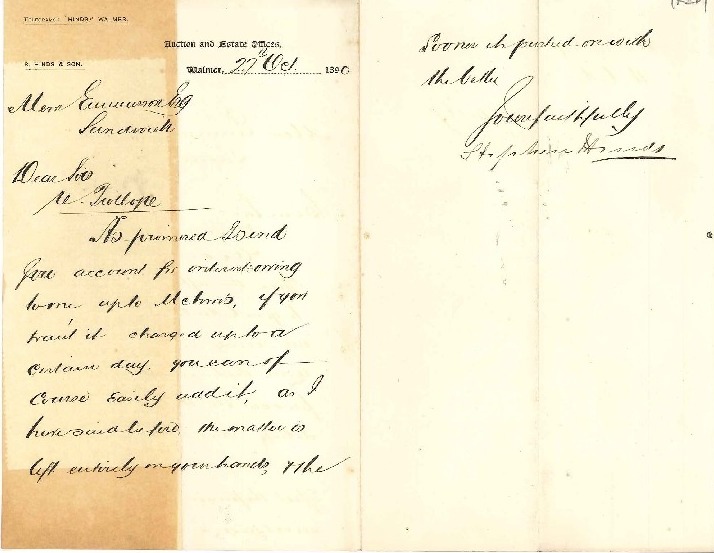 TELEGRAMS: "HINDS" WALMER.
Auction and Estate Offices,
S. HINDS & SON.
Walmer, 27th Oct 1890
Messrs Emmerson Esq
Sandwich
Dear Sir
re Trollope
As promised I send
you account for interest owing
to me up to Mchmas, if you
want it charged up to a
certain day you can of
course easily add it, as I
have said before, the matter is
left entirely in your hands, & the
sooner it is pushed on with
the better
Yours faithfully
Stephen Hinds